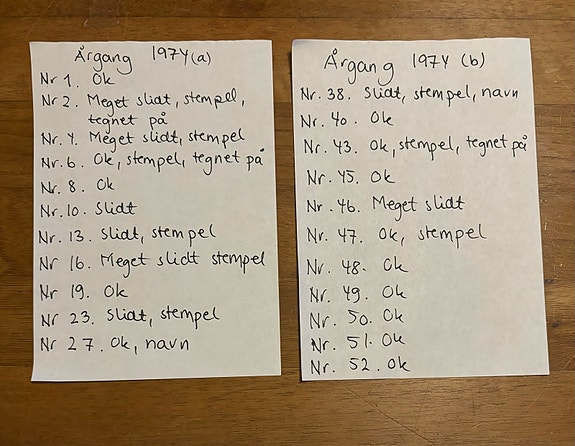 Årgang 1974 (a)
Nr 1. Ok
Nr 2. Meget slidt, stempel,
tegnet på
Nr. 4. Meget slidt, stempel
Nr. 6. Ok, stempel, tegnet på
Nr. 8. Ok
Nr. 10. Slidt
Nr. 13. Slidt, stempel
Nr 16. Meget slidt stempel
Nr 19. Ok
Nr 23. Slidt, stempel
Nr 27. Ok, navn
Årgang 1974 (b)
Nr. 38. Slidt, stempel, navn
Nr. 40. Ok
Nr. 43. Ok, stempel, tegnet på
Nr. 45. Ok
Nr. 46. Meget slidt
Nr. 47. Ok, stempel
Nr. 48. Ok
Nr. 49. Ok
Nr. 50. Ok
Nr. 51. Ok
Nr. 52. Ok